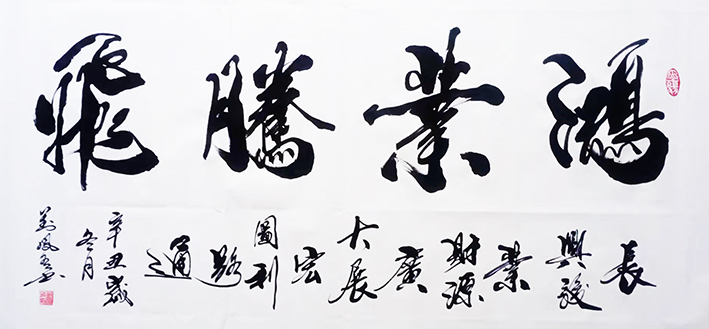 鴻業騰飛
長興駿業財源廣大展宏圖利路通
辛丑歲
冬月